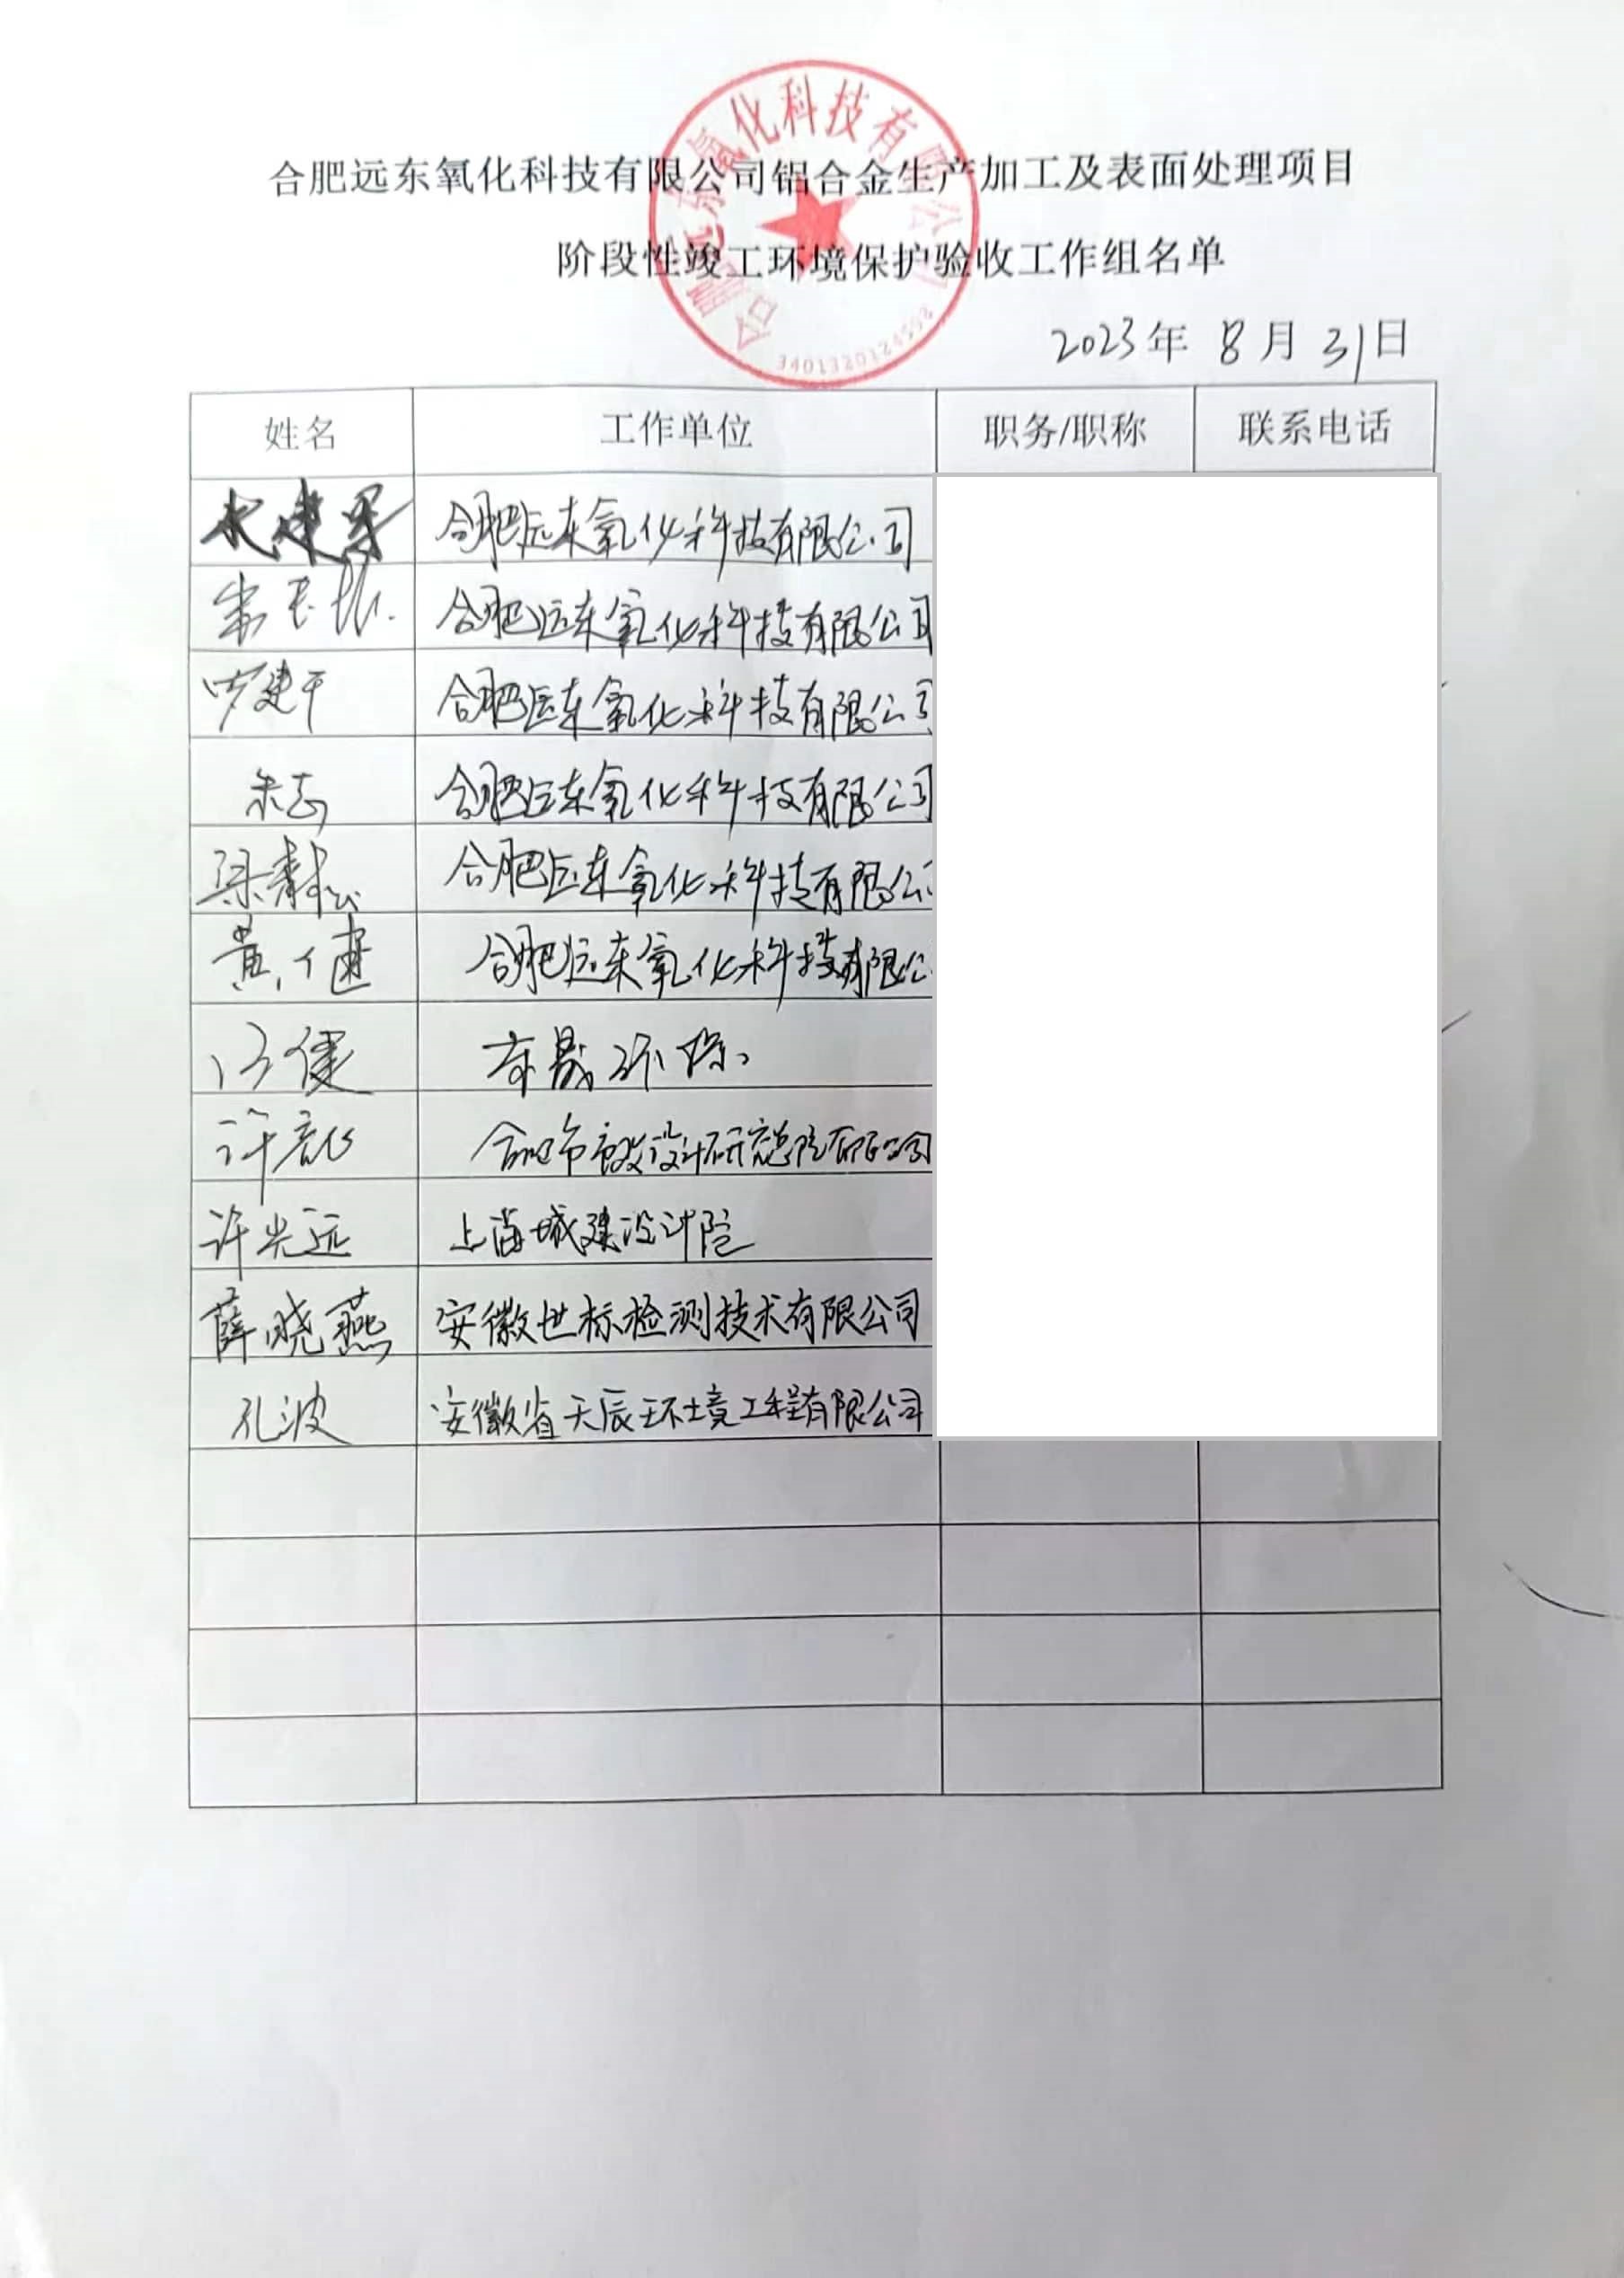 合肥远东氧化科技有限公司
3401320124558
合肥远东氧化科技有限公司铝合金生产加工及表面处理项目
阶段性竣工环境保护验收工作组名单
2023年 8月 31日
姓名 工作单位 职务/职称 联系电话
合肥远东氧化科技有限公司
合肥远东氧化科技有限公司
合肥远东氧化科技有限公司
朱志 合肥远东氧化科技有限公司
合肥远东氧化科技有限公
黄健 合肥远东氧化科技有限公
健 环保
许 设计研究总院有限公司
许光远 上海城建设计院
薛晓燕 安徽世标检测技术有限公司
孔波 安徽省天辰环境工程有限公司